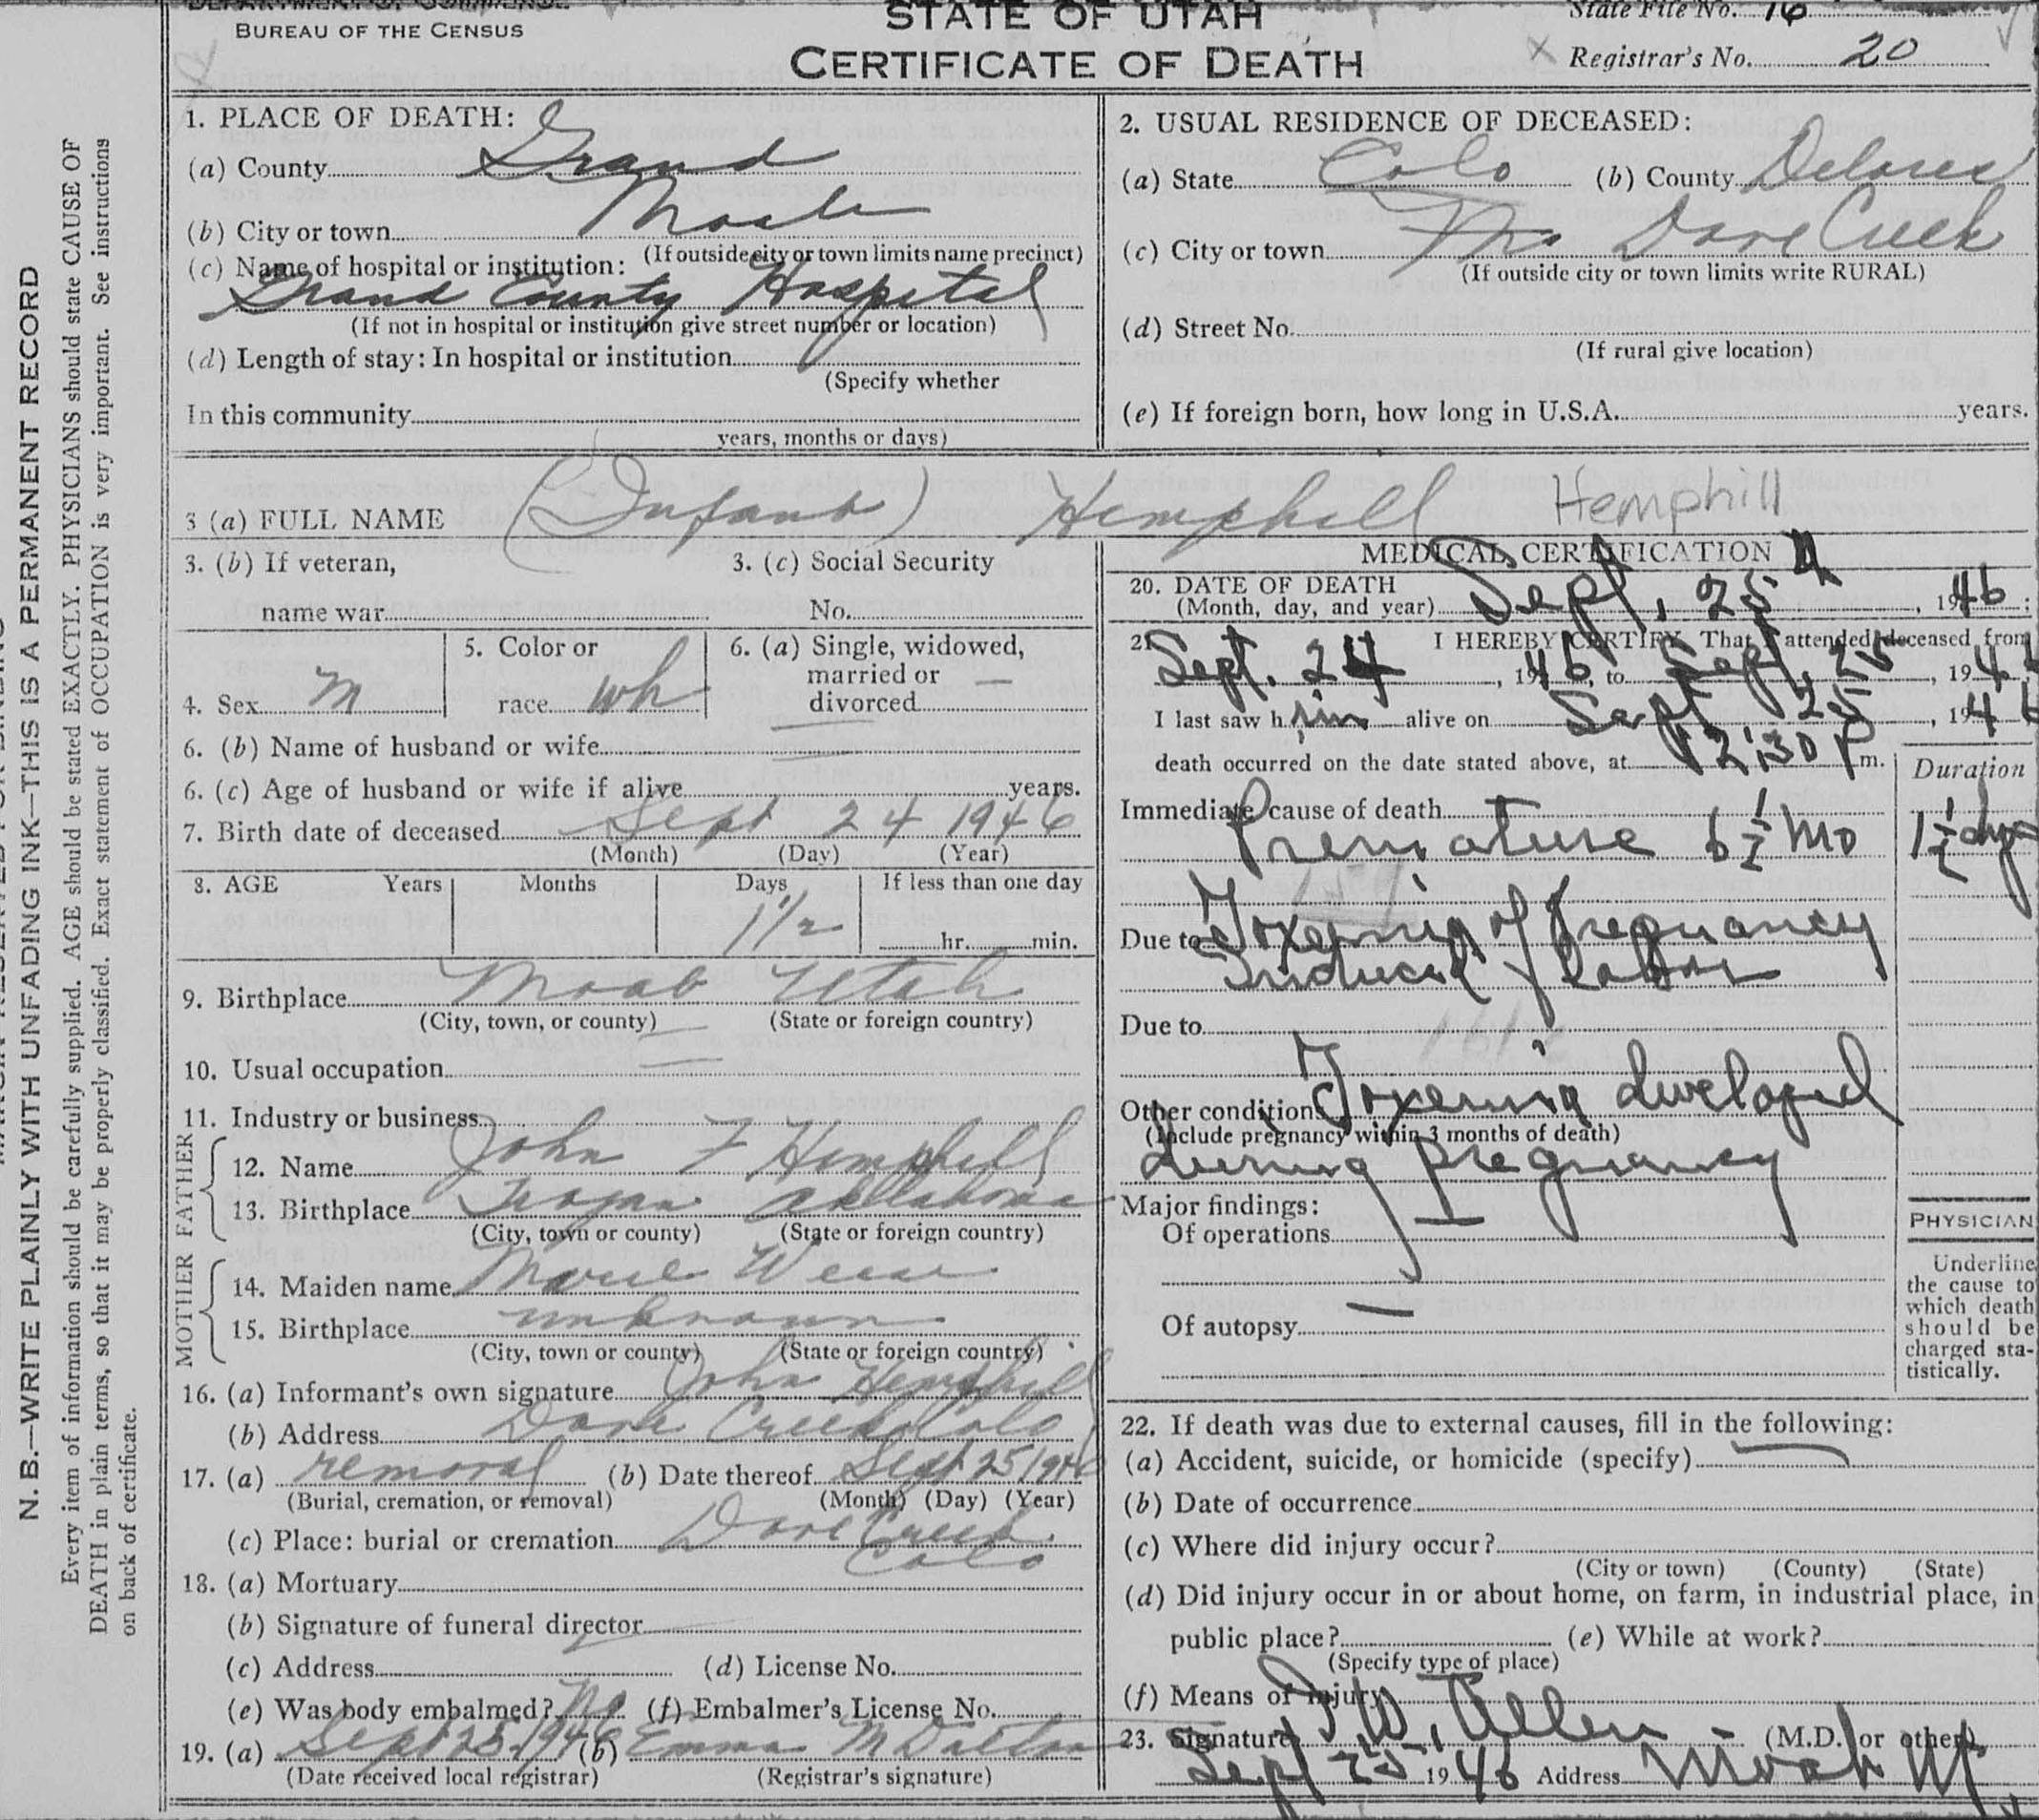 BUREAU OF THE CENSUS
STATE OF UTAH
CERTIFICATE OF DEATH
State File No. 16
Registrar's No. 20
N. B.—WRITE PLAINLY WITH UNFADING INK—THIS IS A PERMANENT RECORD
Every item of information should be carefully supplied. AGE should be stated EXACTLY. PHYSICIANS should state CAUSE OF
DEATH in plain terms, so that it may be properly classified. Exact statement of OCCUPATION is very important. See instructions
on back of certificate.
1. PLACE OF DEATH:
(a) County Grand
(b) City or town Moab
(If outside city or town limits name precinct)
(c) Name of hospital or institution:
Grand County Hospital
(If not in hospital or institution give street number or location)
(d) Length of stay: In hospital or institution
(Specify whether
In this community
years, months or days)
2. USUAL RESIDENCE OF DECEASED:
(a) State Colo (b) County Delores
(c) City or town Dove Creek
(If outside city or town limits write RURAL)
(d) Street No.
(If rural give location)
(e) If foreign born, how long in U.S.A. years.
3 (a) FULL NAME (Infant) Hemphill Hemphill
3. (b) If veteran,
name war
3. (c) Social Security
No.
4. Sex M
5. Color or
race wh
6. (a) Single, widowed,
married or
divorced —
6. (b) Name of husband or wife
6. (c) Age of husband or wife if alive years.
7. Birth date of deceased Sept 24 1946
(Month) (Day) (Year)
8. AGE Years Months Days If less than one day
1 1/2 hr. min.
9. Birthplace Moab Utah
(City, town, or county) (State or foreign country)
10. Usual occupation
11. Industry or business
FATHER
12. Name John F Hemphill
13. Birthplace
(City, town or county) (State or foreign country)
MOTHER
14. Maiden name
15. Birthplace unknown
(City, town or county) (State or foreign country)
16. (a) Informant's own signature John Hemphill
(b) Address Dove Creek Colo
17. (a) removal (b) Date thereof Sept 25 1946
(Burial, cremation, or removal) (Month) (Day) (Year)
(c) Place: burial or cremation Dove Creek
Colo
18. (a) Mortuary
(b) Signature of funeral director
(c) Address (d) License No.
(e) Was body embalmed? No (f) Embalmer's License No.
19. (a) Sept 25 1946 (b) Emma M Dalton
(Date received local registrar) (Registrar's signature)
MEDICAL CERTIFICATION
20. DATE OF DEATH
(Month, day, and year) Sept, 25, 1946;
21. I HEREBY CERTIFY, That I attended deceased from
Sept. 24, 1946, to Sept, 25, 1946
I last saw him alive on Sept 25, 1946
death occurred on the date stated above, at 12:30 P m.
Duration
Immediate cause of death
Premature 6 1/2 Mo 1 1/2 dys
Due to Toxemia of pregnancy
Induced labor
Due to
Other conditions Toxemia developed
(Include pregnancy within 3 months of death)
during pregnancy
Major findings:
Of operations
Of autopsy —
PHYSICIAN
Underline
the cause to
which death
should be
charged sta-
tistically.
22. If death was due to external causes, fill in the following:
(a) Accident, suicide, or homicide (specify)
(b) Date of occurrence
(c) Where did injury occur?
(City or town) (County) (State)
(d) Did injury occur in or about home, on farm, in industrial place, in
public place? (e) While at work?
(Specify type of place)
(f) Means of injury
23. Signature I. W. Allen (M.D. or other)
Sept 25, 1946 Address Moab Ut